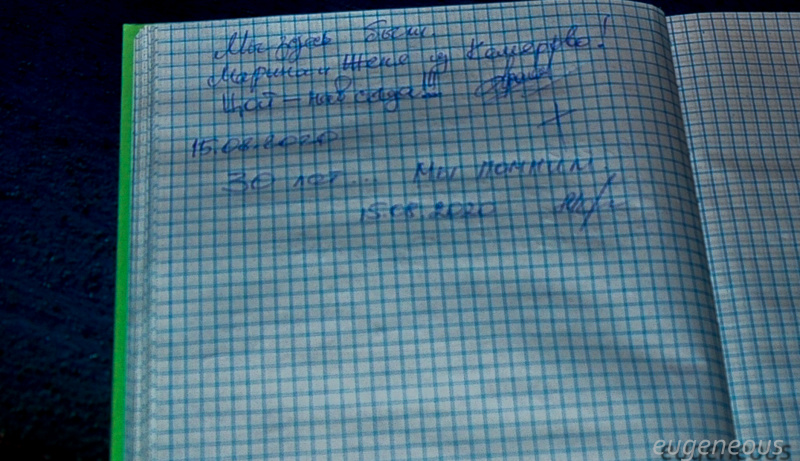 Мы здесь были
Марина и Женя из
Цой – навсегда!!!
15.08.2020
30 лет... Мы помним.
15.08.2020
eugeneous